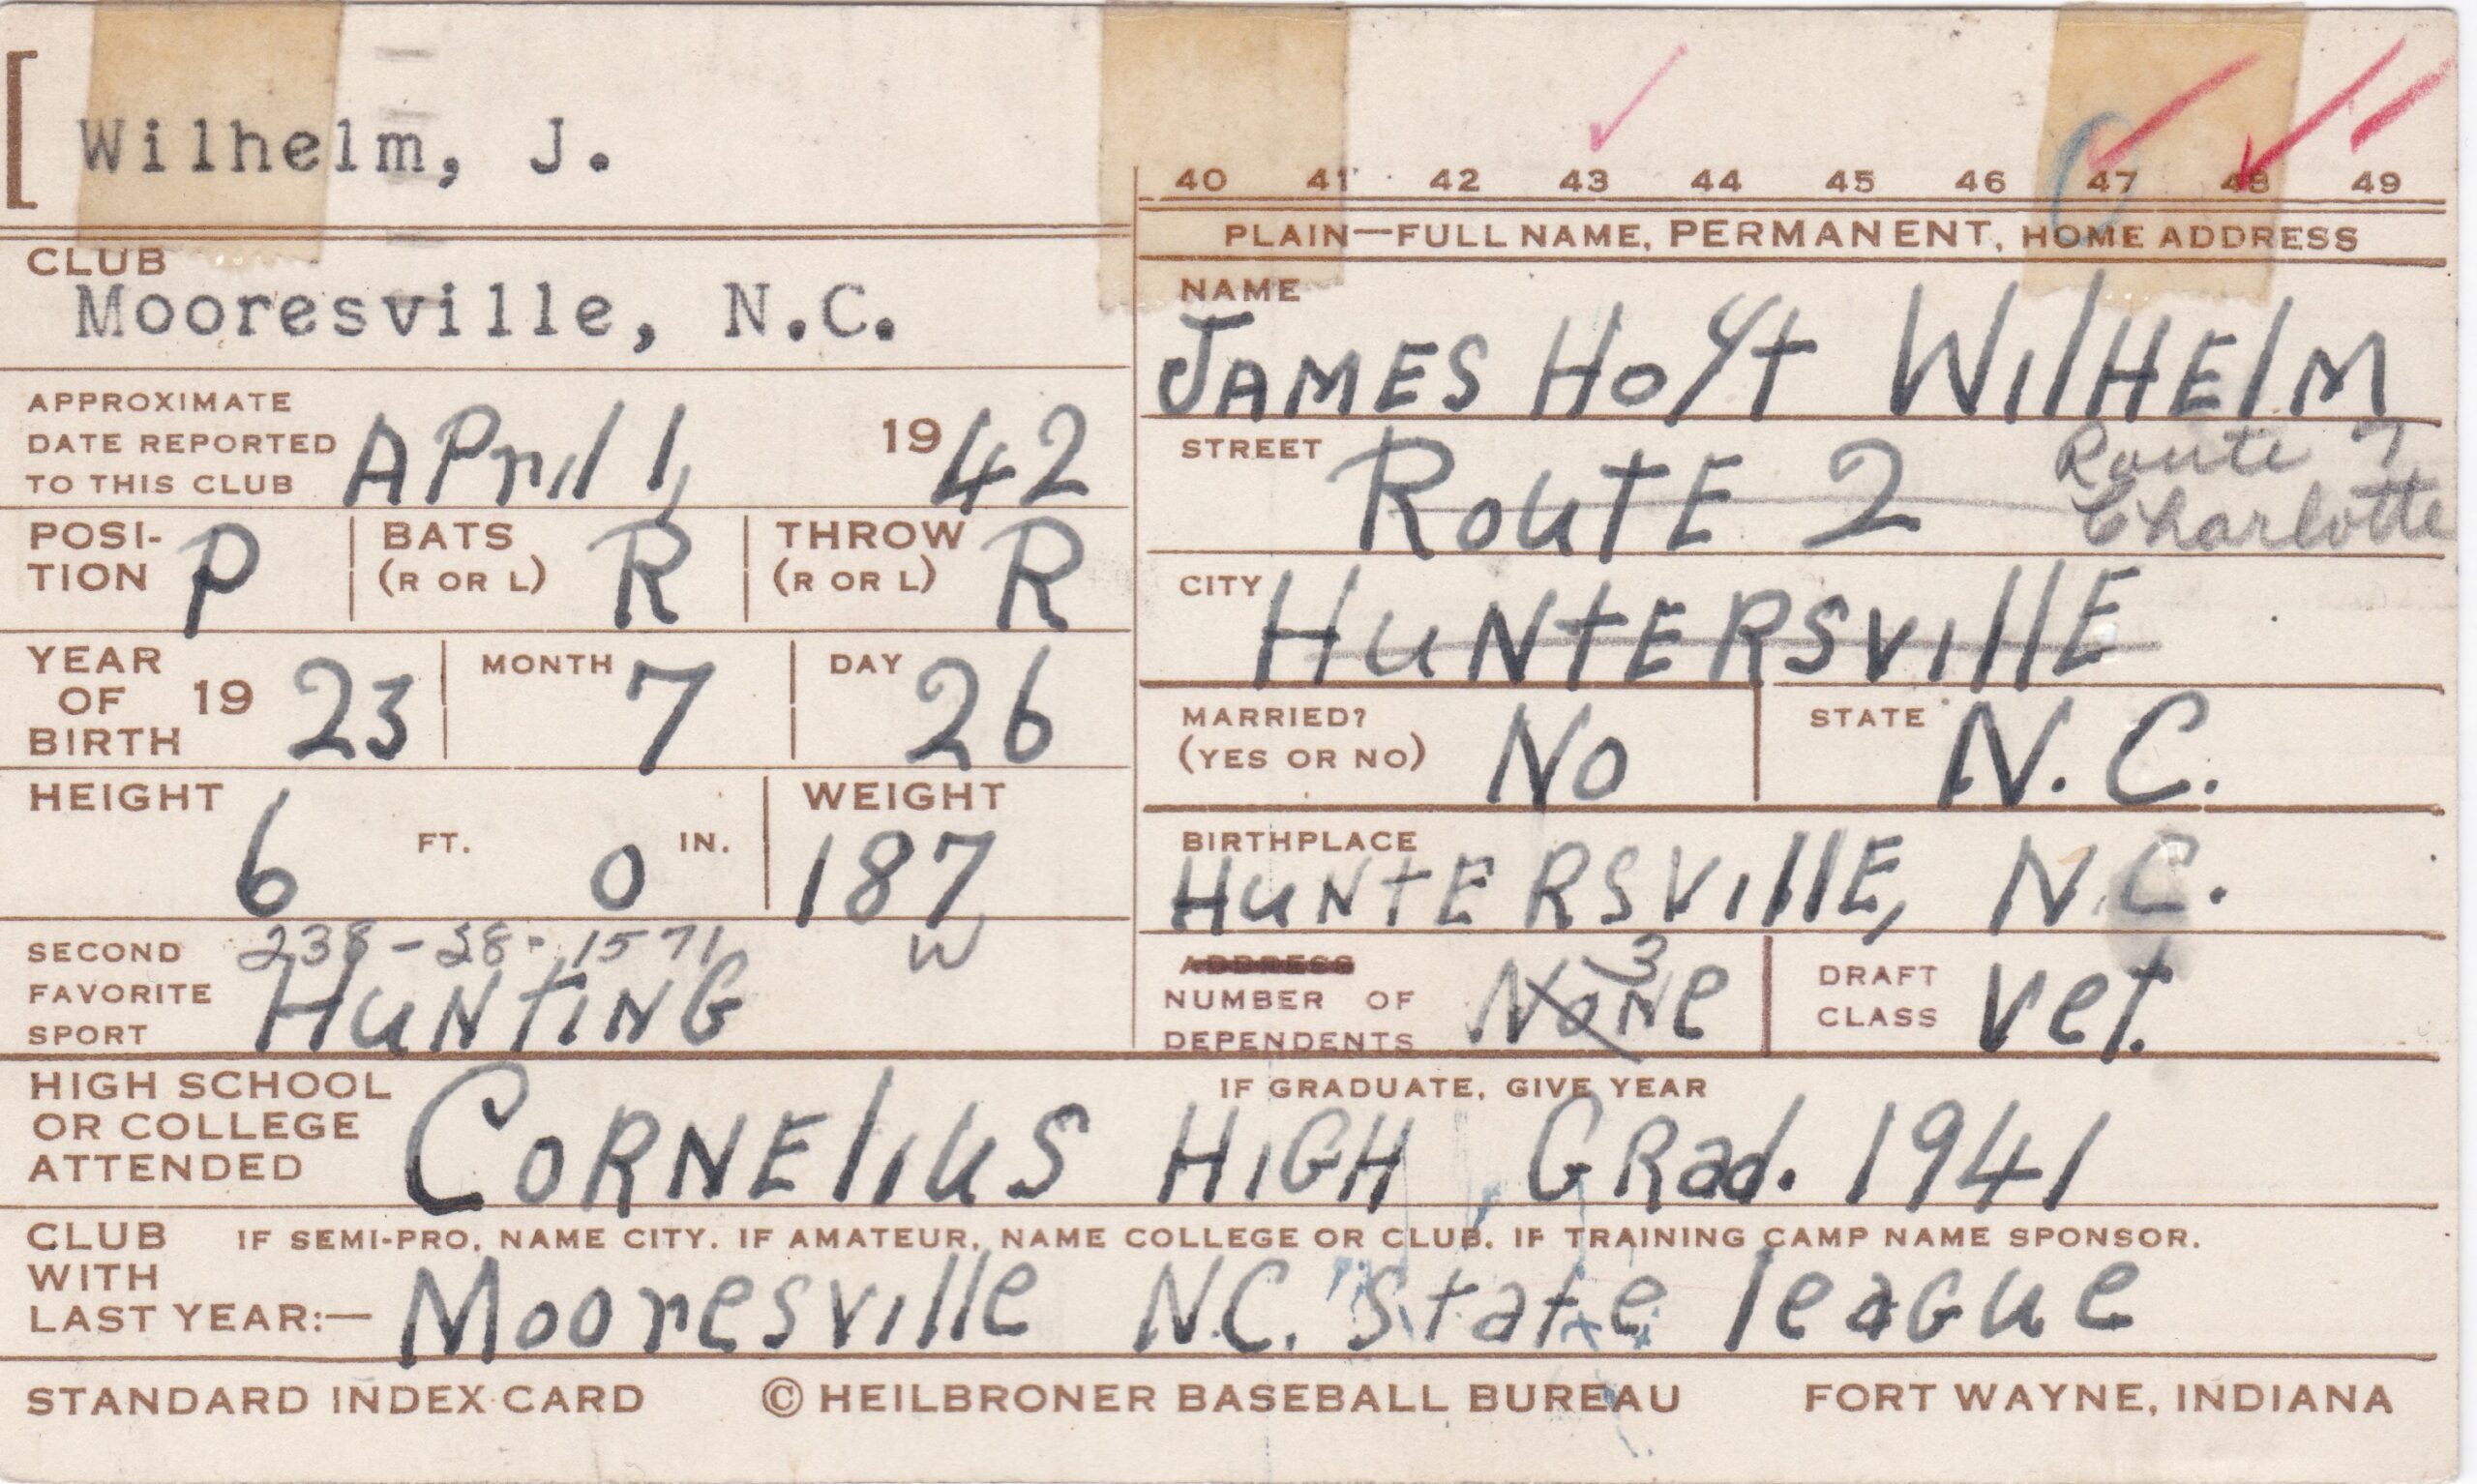 Wilhelm, J.
40 41 42 43 44 45 46 47 48 49
CLUB
Mooresville, N.C.
APPROXIMATE
DATE REPORTED
TO THIS CLUB APril 1, 1942
POSI-
TION P BATS
(R OR L) R THROW
(R OR L) R
YEAR
OF
BIRTH 19 23 MONTH 7 DAY 26
HEIGHT 6 FT. 0 IN. WEIGHT 187
W
SECOND
FAVORITE
SPORT HUNTING
PLAIN—FULL NAME, PERMANENT, HOME ADDRESS
NAME
JAMES HoYt WilHElM
STREET RoutE 2 Route 7
Charlotte
CITY HUNtERSvillE
MARRIED?
(YES OR NO) No STATE N.C.
BIRTHPLACE
HUNtERSVillE, N.C.
ADDRESS
NUMBER OF
DEPENDENTS NoNe 3 DRAFT
CLASS vet.
HIGH SCHOOL
OR COLLEGE
ATTENDED CORNElius HIGH IF GRADUATE, GIVE YEAR GRad. 1941
CLUB
WITH
LAST YEAR:— IF SEMI-PRO, NAME CITY. IF AMATEUR, NAME COLLEGE OR CLUB. IF TRAINING CAMP NAME SPONSOR.
Mooresville N.C. State leaGue
STANDARD INDEX CARD © HEILBRONER BASEBALL BUREAU FORT WAYNE, INDIANA